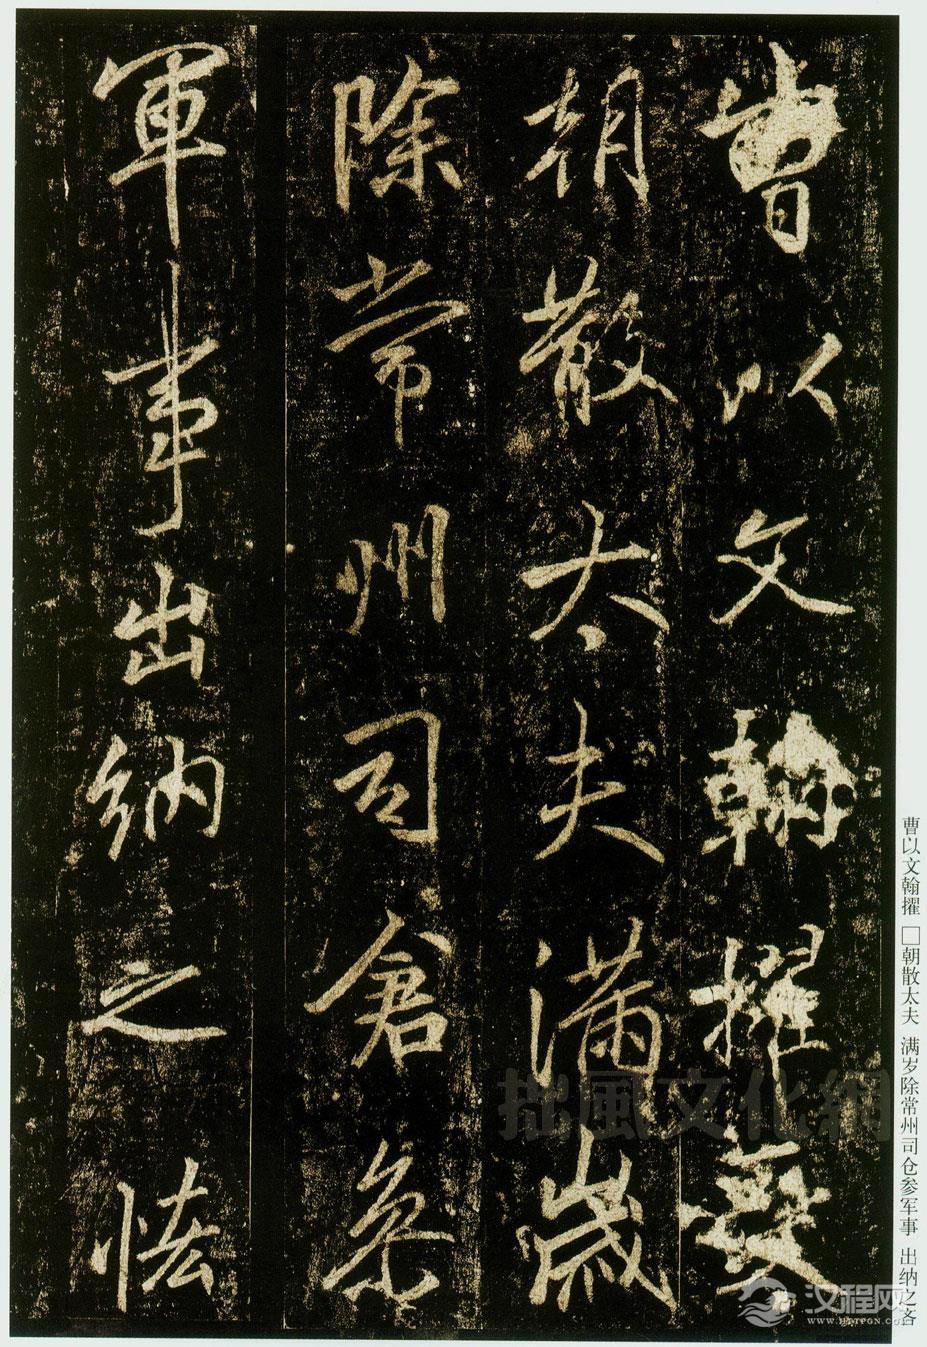 曹以文翰擢
朝散大夫满歲
除常州司倉叅
軍事出納之恡
曹以文翰擢 □朝散太夫 满岁除常州司仓参军事 出纳之吝
拙風文化網
汉程网
WWW.HTTPCN.COM